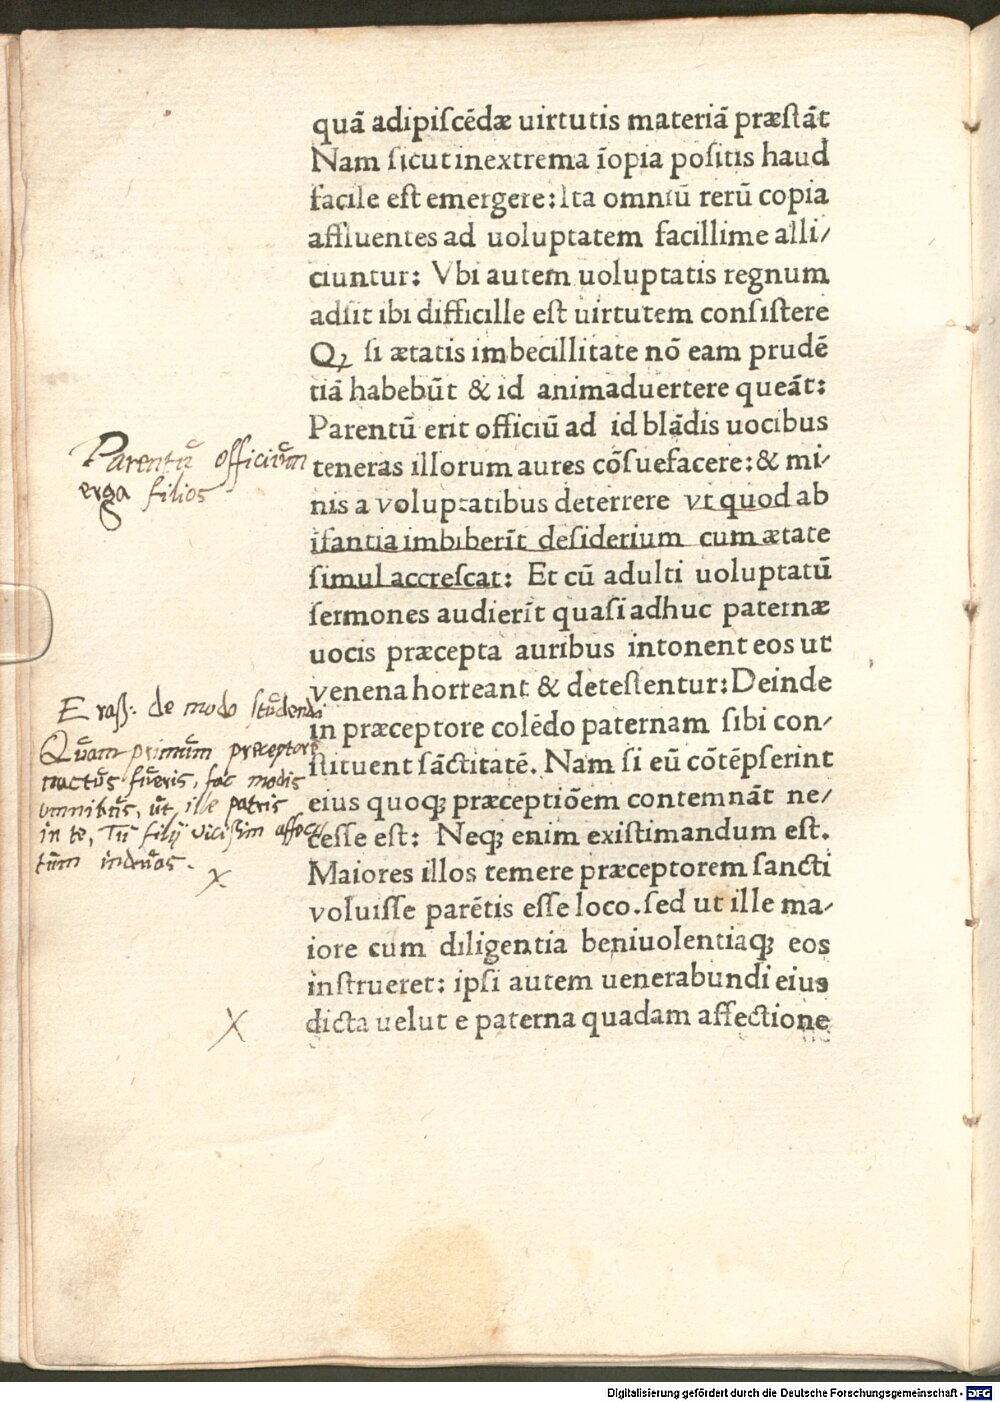 quā adipiſcēdæ uirtutis materiā præſtāt
Nam ſicut in extrema īopia poſitis haud
facile eſt emergere: Ita omniū rerū copia
affluentes ad uoluptatem facillime alli/
ciuntur: Vbi autem uoluptatis regnum
adſit ibi difficille eſt uirtutem conſiſtere
Qꝫ ſi ætatis imbecillitate nō eam prudē
tiā habebūt & id animaduertere queāt:
Parentū erit officiū ad id blādis uocibus
teneras illorum aures cōſuefacere: & mi/
nis a voluptatibus deterrere vt quod ab
iſantia imbiberīt deſiderium cum ætate
ſimul accreſcat: Et cū adulti uoluptatū
ſermones audierīt quaſi adhuc paternæ
uocis præcepta auribus intonent eos ut
venena horreant & deteſtentur: Deinde
in præceptore colēdo paternam ſibi con/
ſtituent ſāctitatē. Nam ſi eū cōtēpſerint
eius quoqꝫ præceptiōem contemnāt ne/
ceſſe eſt: Neqꝫ enim exiſtimandum eſt.
Maiores illos temere præceptorem ſancti
voluiſſe parētis eſſe loco. ſed ut ille ma/
iore cum diligentia beniuolentiaqꝫ eos
inſtrueret: ipſi autem uenerabundi eius
dicta uelut e paterna quadam affectione
Parentū officium
erga filios
Eraſſ: de modo ſtudendi
Quam primum præceptorē
nactus fueris, fac modis
omnibus, ut ille patris
in te, Tu filij viciſſim affec
tum induas.
x
X
Digitalisierung gefördert durch die Deutsche Forschungsgemeinschaft - DFG